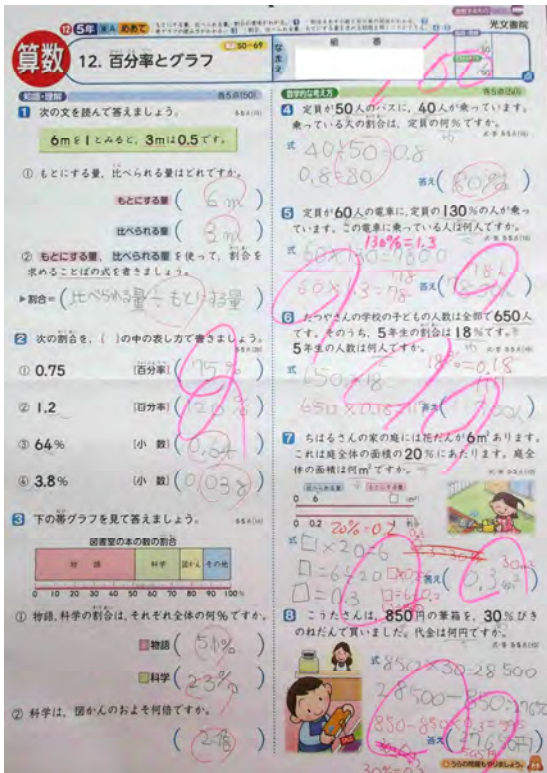 光文書院
算数
12. 百分率とグラフ
50~69
なまえ
組 番
知識・理解
各5点(50)
1 次の文を読んで答えましょう。
6mを1とみると、3mは0.5です。
① もとにする量、比べられる量はどれですか。
もとにする量 ( 6m )
比べられる量 ( 3m )
② もとにする量、比べられる量 を使って、割合を
求めることばの式を書きましょう。
▶割合=( 比べられる量÷もとにする量 )
2 次の割合を、( )の中の表し方で書きましょう。
① 0.75 [百分率] ( 75% )
② 1.2 [百分率] ( 120% )
③ 64% [小 数] ( 0.64 )
④ 3.8% [小 数] ( 0.038 )
3 下の帯グラフを見て答えましょう。
図書室の本の数の割合
物 語 科学 図かん その他
0 10 20 30 40 50 60 70 80 90 100%
① 物語、科学の割合は、それぞれ全体の何%ですか。
物語 ( 51% )
科学 ( 23% )
② 科学は、図かんのおよそ何倍ですか。
( 2倍 )
数学的な考え方
各5点(50)
4 定員が50人のバスに、40人が乗っています。
乗っている人の割合は、定員の何%ですか。
式 40÷50=0.8
0.8=80
答え ( 80% )
5 定員が60人の電車に、定員の130%の人が乗っ
ています。この電車に乗っている人は何人ですか。
130%=1.3
式 60×130=7800
60×1.3=78
答え ( 78人 )
6 たつやさんの学校の子どもの人数は全部で650人
です。そのうち、5年生の割合は18%です。
5年生の人数は何人ですか。
18%=0.18
式 650×18=
650×0.18=
7 ちはるさんの家の庭には花だんが6m²あります。
これは庭全体の面積の20%にあたります。庭全
体の面積は何m²ですか。
比べられる量 もとにする量
0 6 □ (m²)
0 0.2 割合
20%=0.2
式 □×20=6
□=6÷20
□=0.3
答え ( 0.3m² )
30m²
8 こうたさんは、850円の筆箱を、30%びき
のねだんで買いました。代金は何円ですか。
式 850×30=28500
28500-850=27650
850-850×0.3=595
答え ( 27650円 )
30%=0.3
うらの問題もやりましょう。